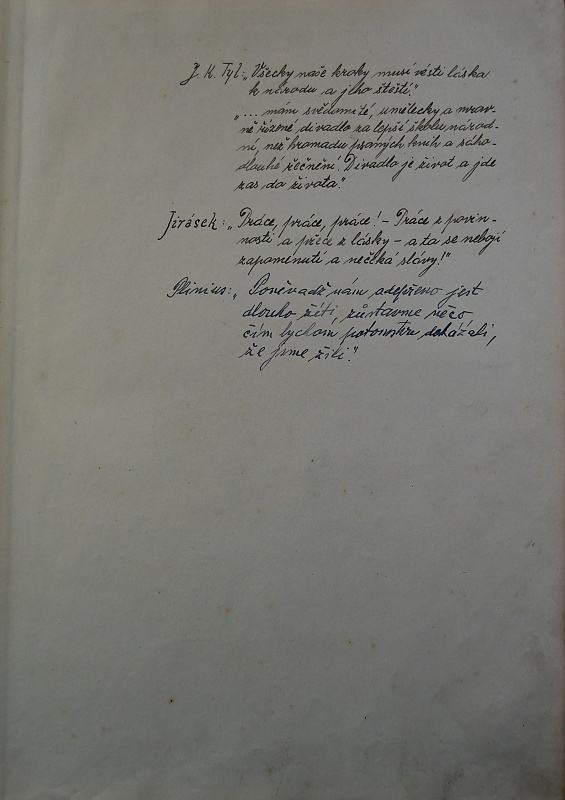 J. K. Tyl: „Všecky naše kroky musí vésti láska
k národu a jeho štěstí."
„... mám svědomitě, umělecky a mrav-
ně řízené divadlo za lepší školu národ-
ní, než hromadu psaných knih a sáho-
dlouhé řečnění! Divadlo je život a jde
zas do života."
Jirásek: „Práce, práce, práce! – Práce z povin-
nosti a práce z lásky – a ta se nebojí
zapomenutí a nečeká slávy!"
Plinius: „Poněvadž nám odepřeno jest
dlouho žíti, zůstavme něco
čím bychom potomstvu dokázali,
že jsme žili."